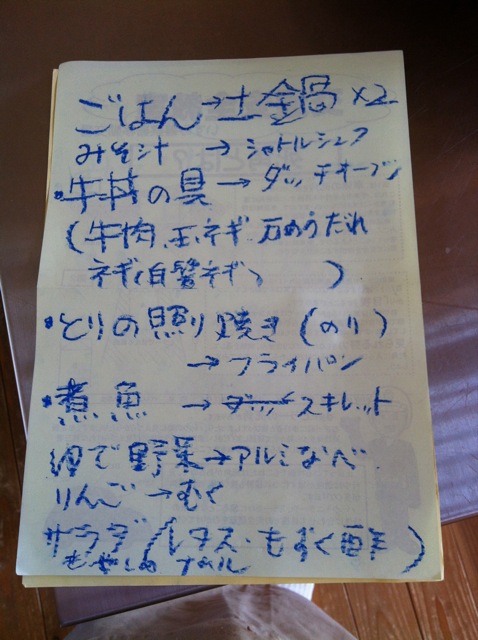 ごはん→土鍋×2
みそ汁 → シャトルシェフ
・牛丼の具 → ダッチオーブン
(牛肉、玉ネギ
ネギ(白髪ネギ) )
・とりの照り焼き(のり)
→フライパン
・煮魚 → スキレット
ゆで野菜→アルミなべ
りんご→むく
サラダ(レタス・もずく酢)